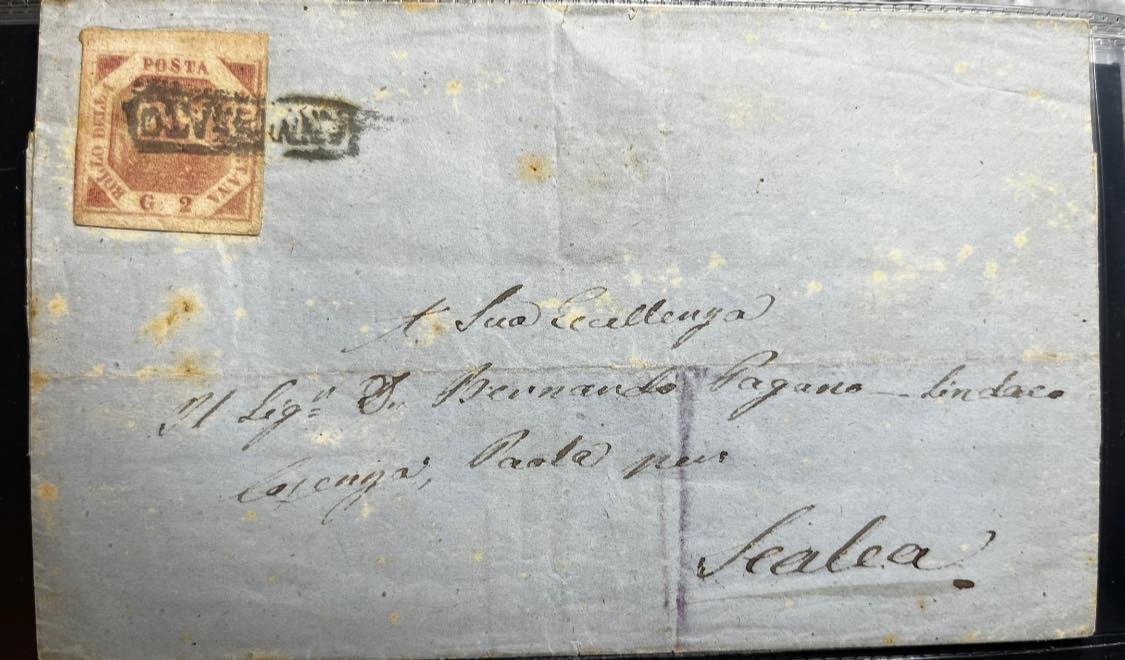 POSTA
BOLLO DELLA
G. 2
ANNULLATO
A Sua Eccellenza
Il Sig.r D. Bernardo Pagano — Sindaco
Cosenza, Paola per
Scalea